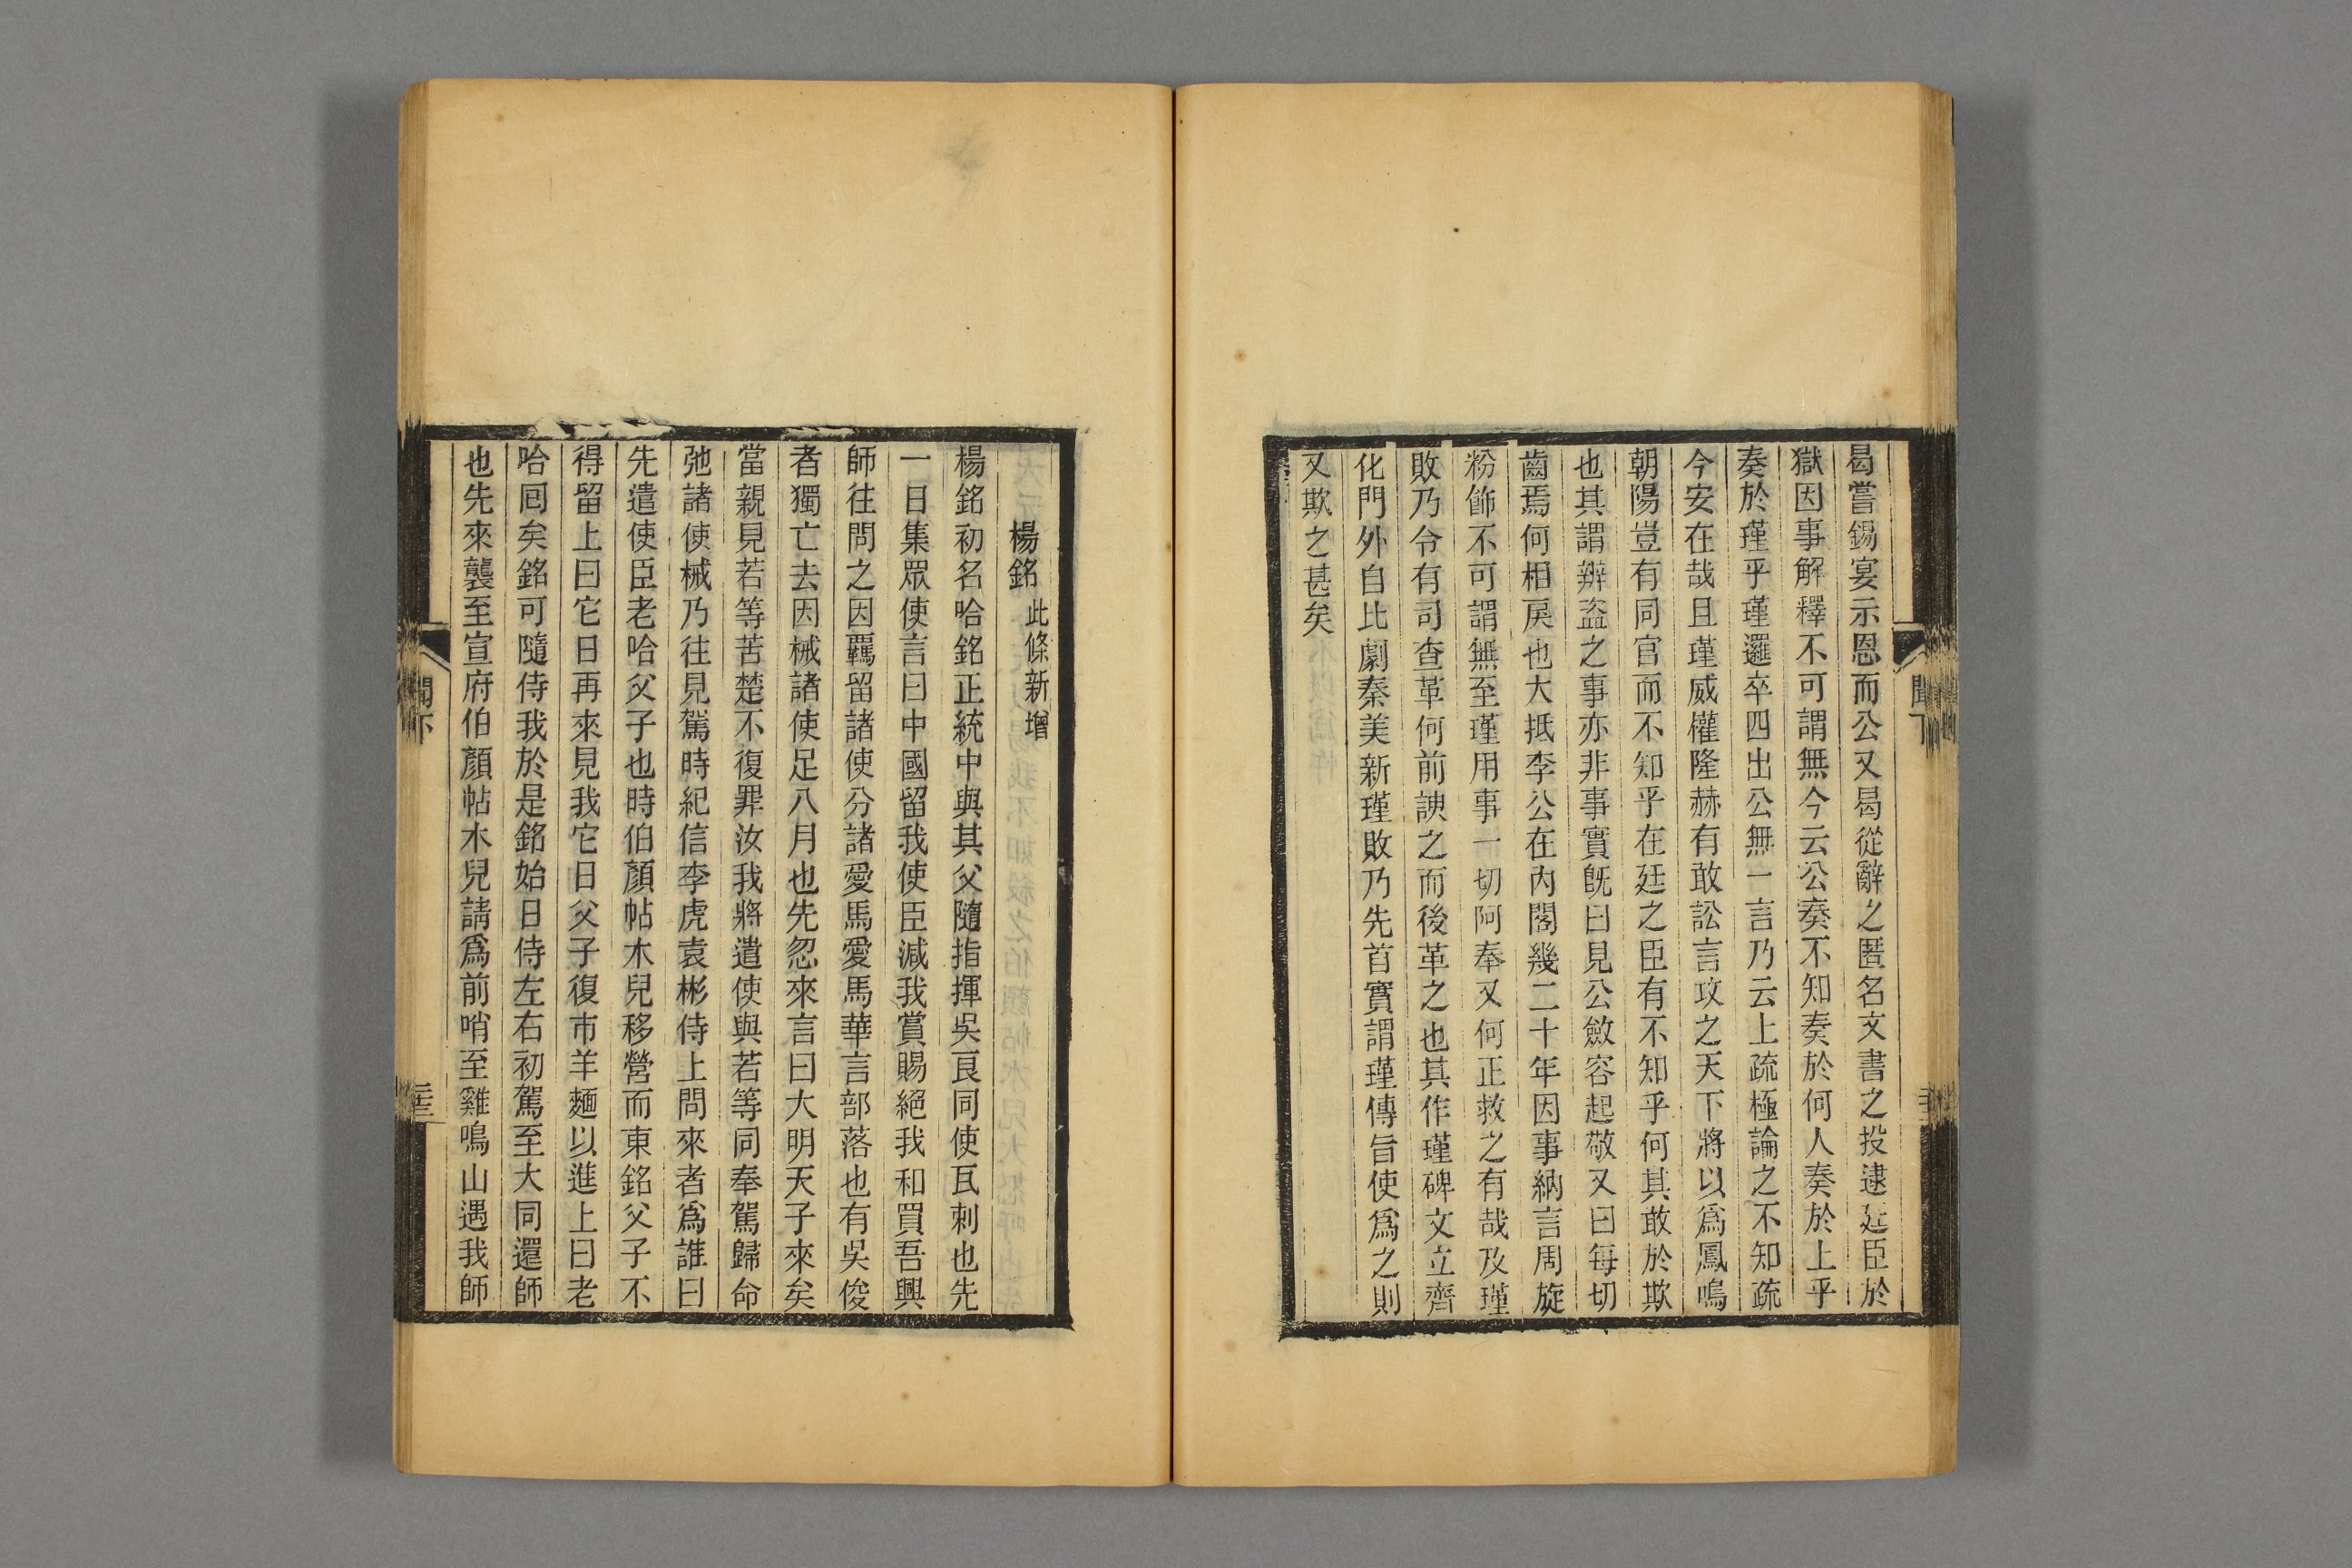 曷嘗錫宴示恩而公又曷從辭之匿名文書之投逮廷臣於
獄因事解釋不可謂無今云公奏不知奏於何人奏於上乎
奏於瑾乎瑾邏卒四出公無一言乃云上疏極論之不知疏
今安在哉且瑾威權隆赫有敢訟言攻之天下將以爲鳳鳴
朝陽豈有同官而不知乎在廷之臣有不知乎何其敢於欺
也其謂辦盜之事亦非事實既曰見公斂容起敬又曰每切
齒焉何相戾也大抵李公在內閣幾二十年因事納言周旋
粉飾不可謂無至瑾用事一切阿奉又何正救之有哉及瑾
敗乃令有司查革何前諛之而後革之也其作瑾碑文立齊
化門外自比劇秦美新瑾敗乃先首實謂瑾傳旨使爲之則
又欺之甚矣
楊銘此條新增
楊銘初名哈銘正統中與其父隨指揮吳良同使瓦剌也先
一日集眾使言曰中國留我使臣減我賞賜絕我和買吾興
師往問之因覊留諸使分諸愛馬愛馬華言部落也有吳俊
者獨亡去因械諸使足八月也先忽來言曰大明天子來矣
當親見若等苦楚不復罪汝我將遣使與若等同奉駕歸命
弛諸使械乃往見駕時紀信李虎袁彬侍上問來者爲誰曰
先遣使臣老哈父子也時伯顏帖木兒移營而東銘父子不
得留上曰它日再來見我它日父子復市羊麵以進上曰老
哈囘矣銘可隨侍我於是銘始日侍左右初駕至大同還師
也先來襲至宣府伯顏帖木兒請爲前哨至雞鳴山遇我師
聞下